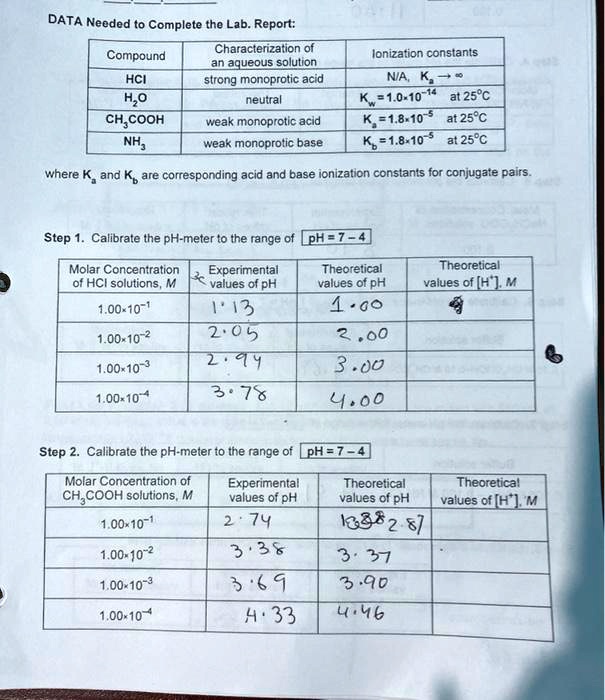 DATA Needed to Complete the Lab. Report:
Compound Characterization of an aqueous solution Ionization constants
HCl strong monoprotic acid N/A, Kₐ → ∞
H₂O neutral K_w = 1.0×10⁻¹⁴ at 25°C
CH₃COOH weak monoprotic acid Kₐ = 1.8×10⁻⁵ at 25°C
NH₃ weak monoprotic base K_b = 1.8×10⁻⁵ at 25°C
where Kₐ and K_b are corresponding acid and base ionization constants for conjugate pairs.
Step 1. Calibrate the pH-meter to the range of pH = 7 – 4
Molar Concentration of HCl solutions, M Experimental values of pH Theoretical values of pH Theoretical values of [H⁺], M
1.00×10⁻¹ 1.13 1.00
1.00×10⁻² 2.05 2.00
1.00×10⁻³ 2.94 3.00
1.00×10⁻⁴ 3.78 4.00
Step 2. Calibrate the pH-meter to the range of pH = 7 – 4
Molar Concentration of CH₃COOH solutions, M Experimental values of pH Theoretical values of pH Theoretical values of [H⁺], M
1.00×10⁻¹ 2.74 2.87
1.00×10⁻² 3.38 3.37
1.00×10⁻³ 3.69 3.90
1.00×10⁻⁴ 4.33 4.46